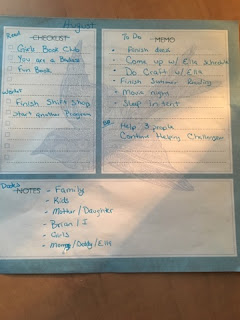 August
Read
CHECKLIST
Girls Book Club
You are a Badass
Fun Book
Workout
Finish Shift Shop
Start another Program
To Do
MEMO
Finish deck
Come up w/ Ella Schedule
Do Craft w/ Ella
Finish Summer Reading
Movie night
Sleep in tent
Help 3 people
Continue Helping Challengers
Dates
NOTES
- Family
- Kids
- Mother / Daughter
- Brian / I
- Girls
- Mommy / Daddy / Ella